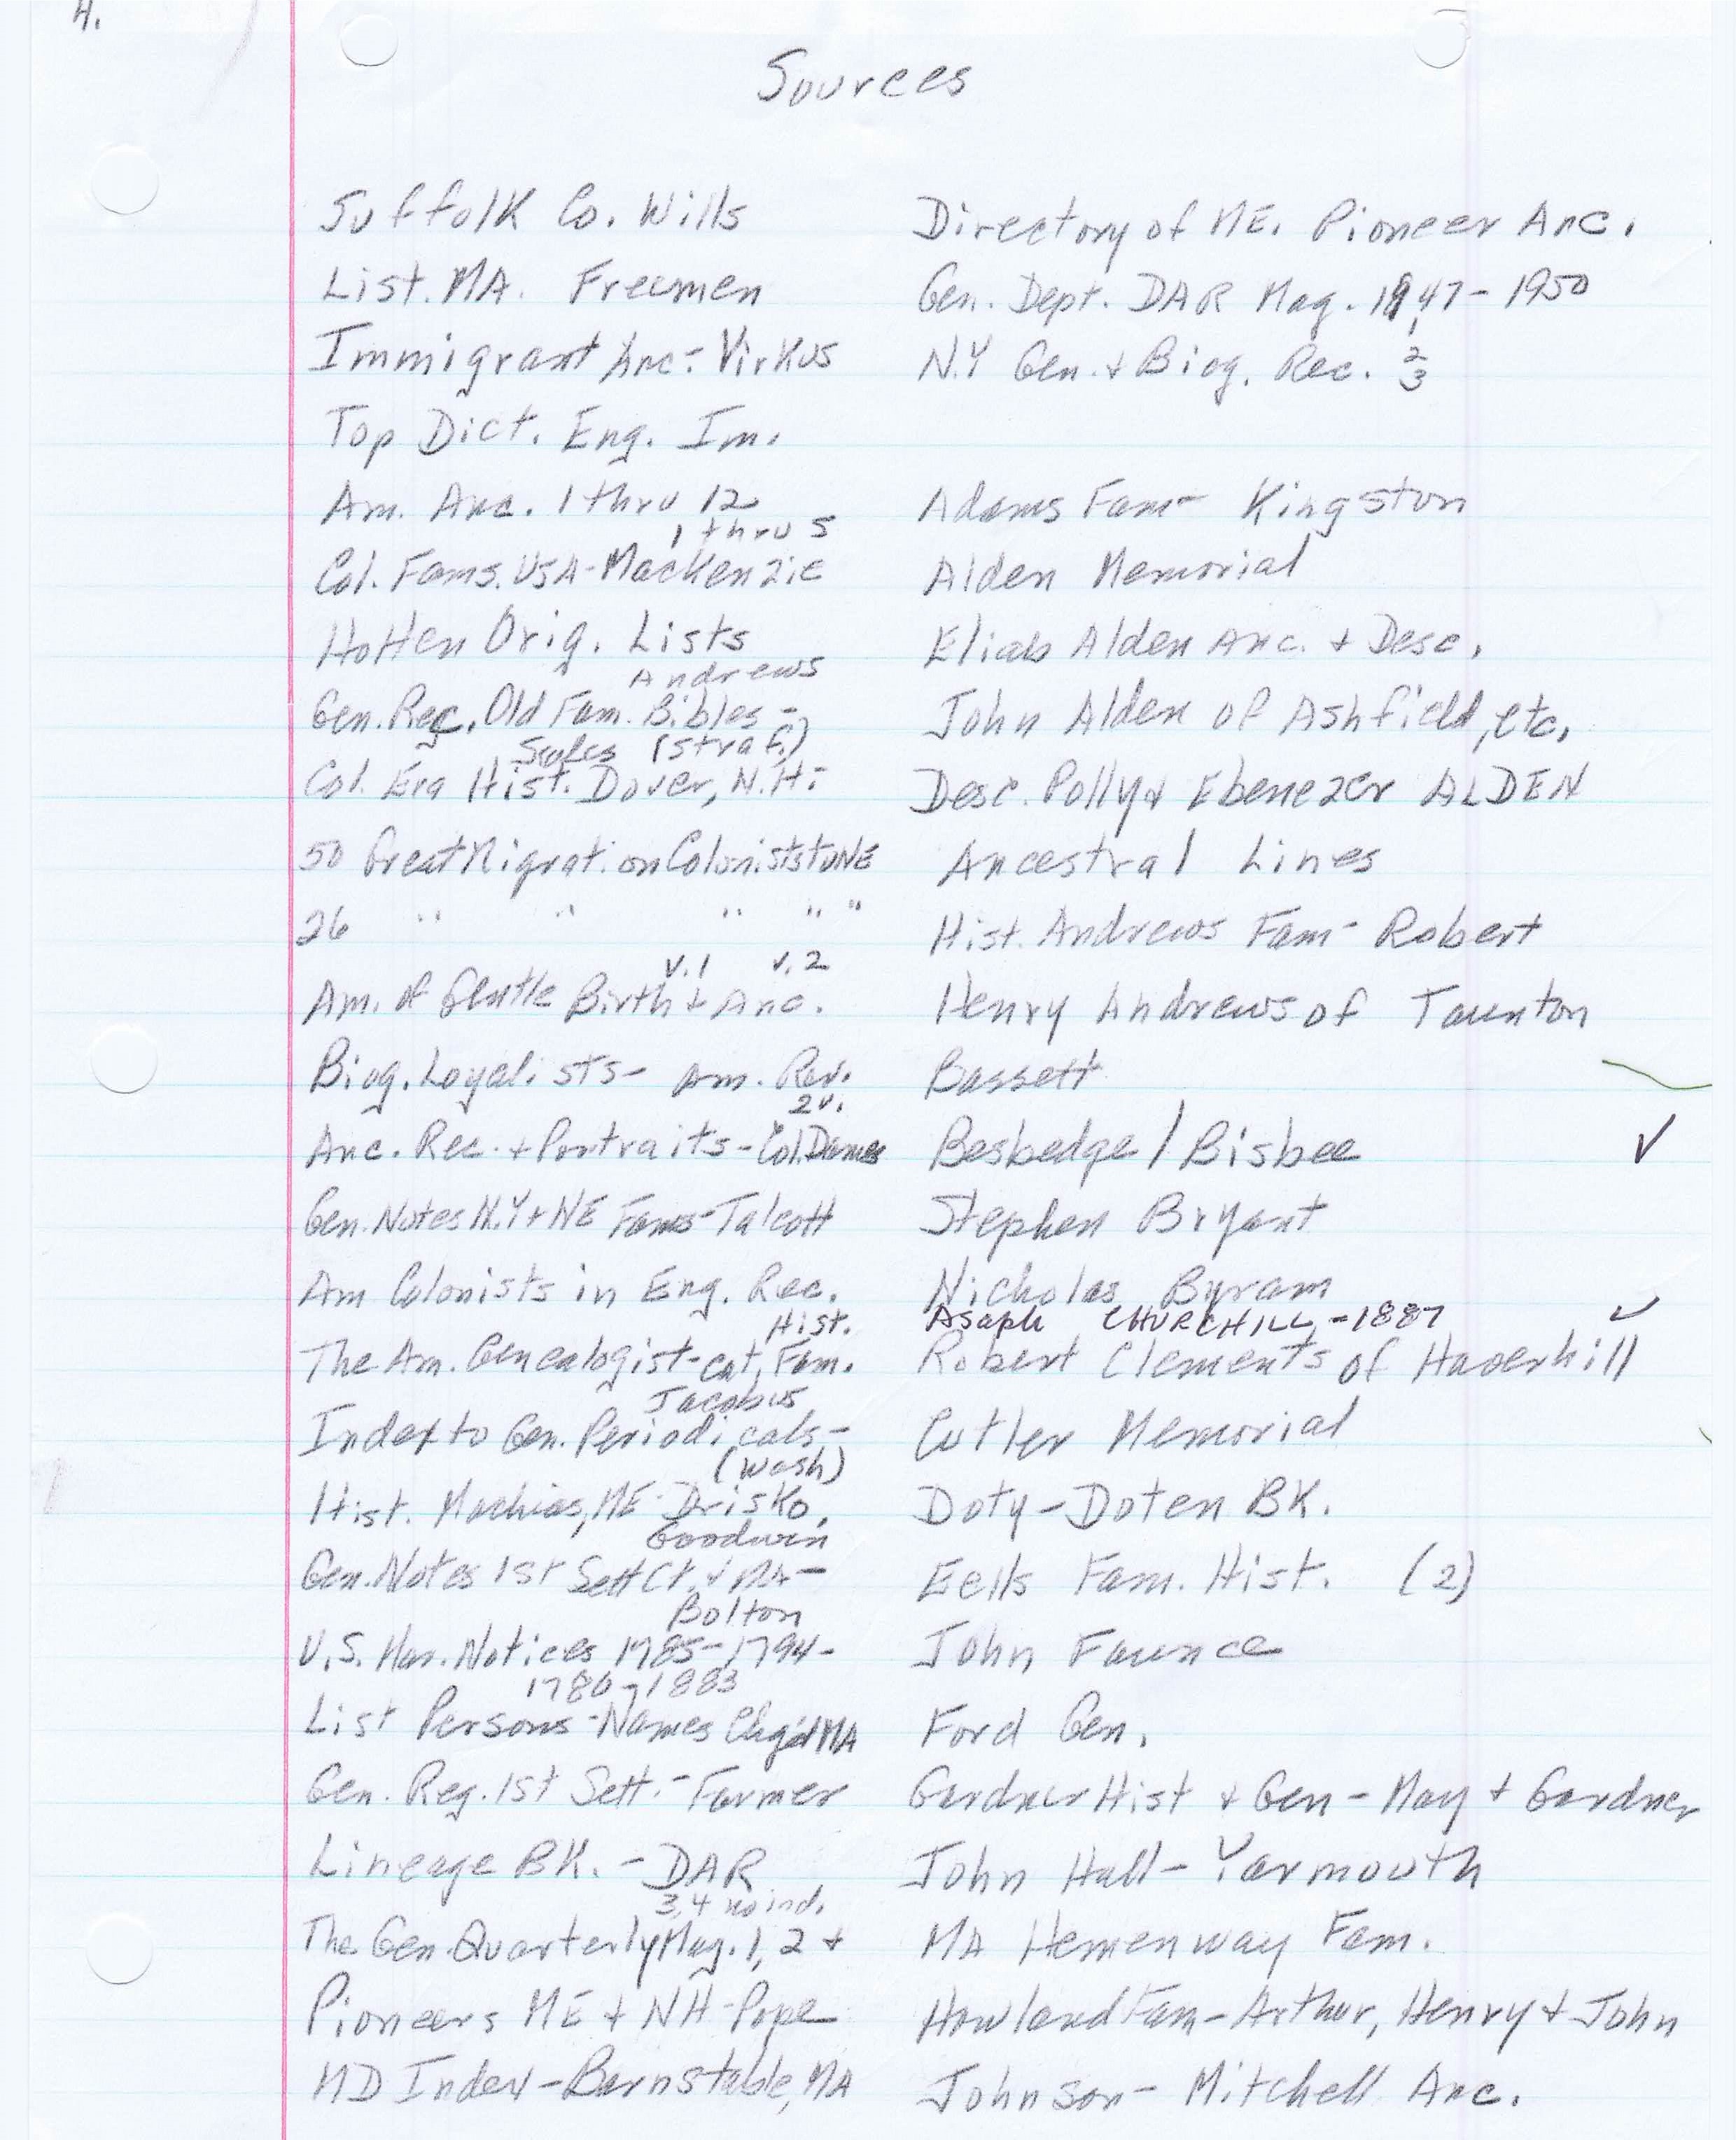 4.
Sources
Suffolk Co. Wills
List. MA. Freemen
Immigrant Anc- Virkus
Top Dict. Eng. Im.
Am. Anc. 1 thru 12
1 thru 5
Col. Fams. USA-MacKenzie
Hotten Orig. Lists
Andrews
Gen. Rec. Old Fam. Bibles -
Scales (Straf.)
Col. Era Hist. Dover, N.H.-
50 Great Migration Colonists to NE
26 " " " " "
v.1 v.2
Am. of Gentle Birth + Anc.
Biog. Loyalists- Am. Rev.
2v.
Anc. Rec. + Portraits - Col. Dames
Gen. Notes N.Y + NE Fams-Talcott
Am Colonists in Eng. Rec.
Hist.
The Am. Genealogist-cat, Fam.
Jacobus
Index to Gen. Periodicals-
(Wash)
Hist. Machias, ME- Drisko,
Goodwin
Gen. Notes 1st Sett Ct. + MA-
Bolton
U.S. Mar. Notices 1785-1794-
1780-1883
List Persons-Names Chg'd MA
Gen. Reg. 1st Sett.- Farmer
Lineage BK. - DAR
3,4 no ind.
The Gen. Quarterly Mag. 1, 2 +
Pioneers ME + NH-Pope
MD Index-Barnstable, MA
Directory of ME. Pioneer Anc.
Gen. Dept. DAR Mag. 1947-1950
N.Y Gen. + Biog. Rec. 1, 2 3
Adams Fam- Kingston
Alden Memorial
Eliab Alden Anc. + Desc.
John Alden of Ashfield, etc.
Desc. Polly + Ebenezer ALDEN
Ancestral Lines
Hist. Andrews Fam- Robert
Henry Andrews of Taunton
Bassett
Besbedge / Bisbee ✓
Stephen Bryant
Nicholas Byram
Asaph CHURCHILL,-1887 ✓
Robert Clements of Haverhill
Cutler Memorial
Doty-Doten BK.
Eells Fam. Hist. (2)
John Faunce
Ford Gen.
Gardner Hist + Gen- May + Gardner
John Hall- Yarmouth
MA Hemenway Fam.
Howland Fam-Arthur, Henry + John
Johnson- Mitchell Anc.